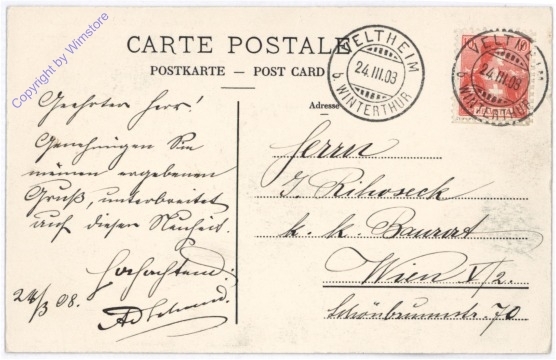 Copyright by Winstore
CARTE POSTALE
POSTKARTE — POST CARD
VELTHEIM
24.III.03
b. WINTERTHUR
VELTHEIM
24.III.03
b. WINTERTHUR
Geehrter Herr!
Genehmigen Sie
meinen ergebenen
Gruß, unterbreitet
auf dieser Neuheit.
Hochachtend:
24/3 08.
Adresse
Herrn
J. Rihoseck
k. k. Baurat
Wien V/2.
Schönbrunnstr. 70